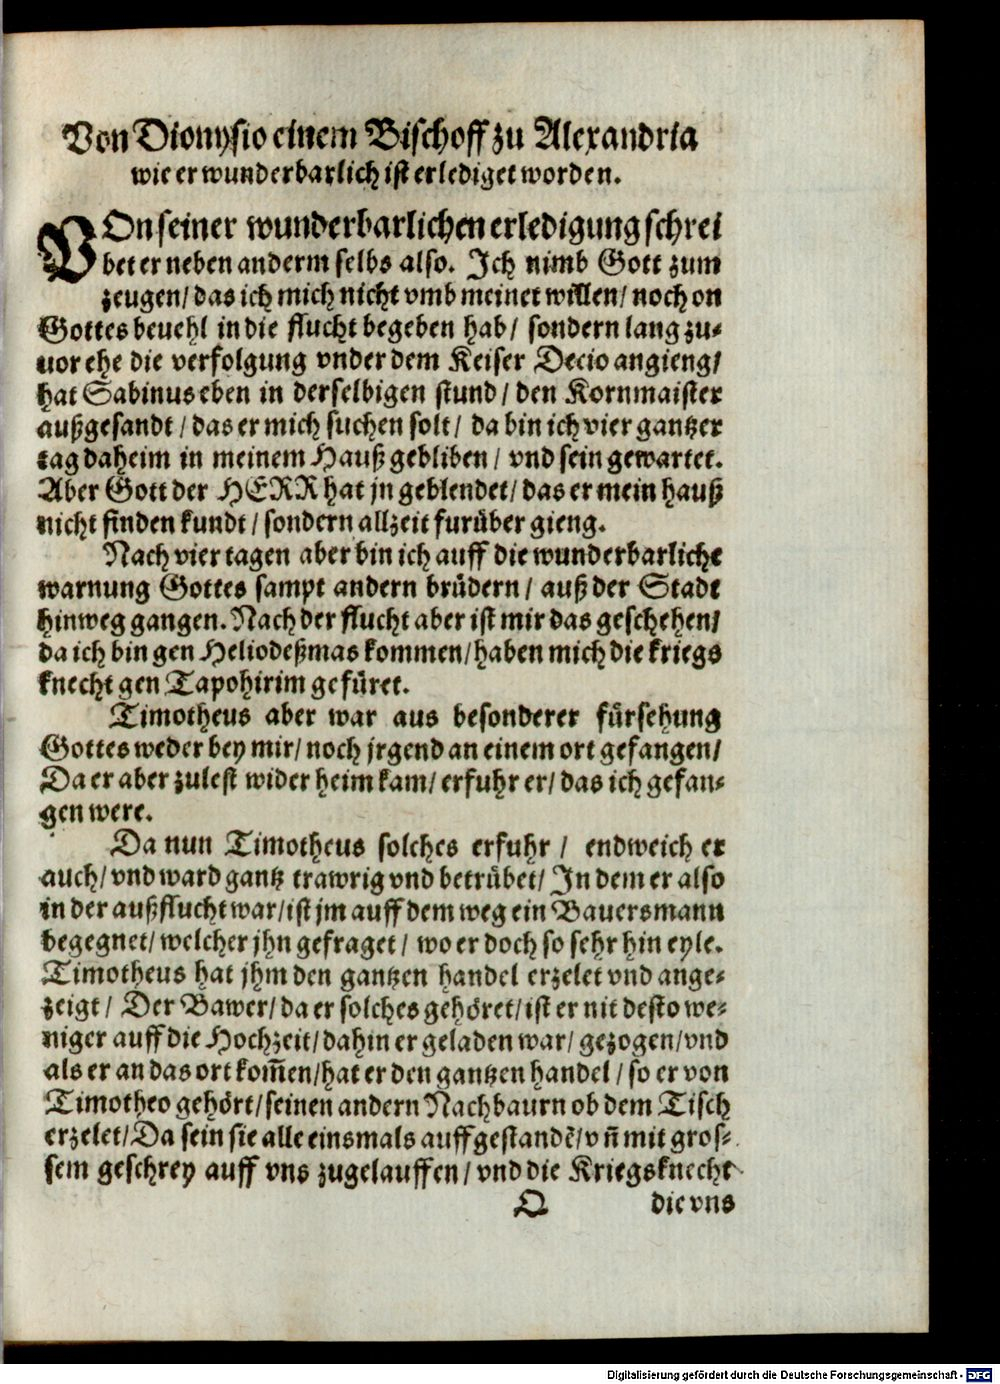 Von Dionysio einem Bischoff zu Alexandria
wie er wunderbarlich ist erlediget worden.
VOn seiner wunderbarlichen erledigung schrei
bet er neben anderm selbs also. Ich nimb Gott zum
zeugen/ das ich mich nicht vmb meinet willen/ noch on
Gottes beuehl in die flucht begeben hab/ sondern lang zu-
uor ehe die verfolgung vnder dem Keiser Decio angieng/
hat Sabinus eben in derselbigen stund/ den Kornmaister
außgesandt/ das er mich suchen solt/ da bin ich vier gantzer
tag daheim in meinem Hauß gebliben/ vnd sein gewartet.
Aber Gott der HERR hat jn geblendet/ das er mein hauß
nicht finden kundt/ sondern allzeit furüber gieng.
Nach vier tagen aber bin ich auff die wunderbarliche
warnung Gottes sampt andern brüdern/ auß der Stadt
hinweg gangen. Nach der flucht aber ist mir das geschehen/
da ich bin gen Heliodeßmas kommen/ haben mich die kriegs
knecht gen Tapohirim gefüret.
Timotheus aber war aus besonderer fürsehung
Gottes weder bey mir/ noch jrgend an einem ort gefangen/
Da er aber zulest wider heim kam/ erfuhr er/ das ich gefan-
gen were.
Da nun Timotheus solches erfuhr/ endweich er
auch/ vnd ward gantz trawrig vnd betrübet/ In dem er also
in der außflucht war/ ist jm auff dem weg ein Bauersmann
begegnet/ welcher jhn gefraget/ wo er doch so sehr hin eyle.
Timotheus hat jhm den gantzen handel erzelet vnd ange-
zeigt/ Der Bawer/ da er solches gehöret/ ist er nit desto we-
niger auff die Hochzeit/ dahin er geladen war/ gezogen/ vnd
als er an das ort kom̄en/ hat er den gantzen handel/ so er von
Timotheo gehört/ seinen andern Nachbaurn ob dem Tisch
erzelet/ Da sein sie alle einsmals auffgestandē/ vn̄ mit gros-
sem geschrey auff vns zugelauffen/ vnd die Kriegsknecht
O die vns
Digitalisierung gefördert durch die Deutsche Forschungsgemeinschaft - DFG